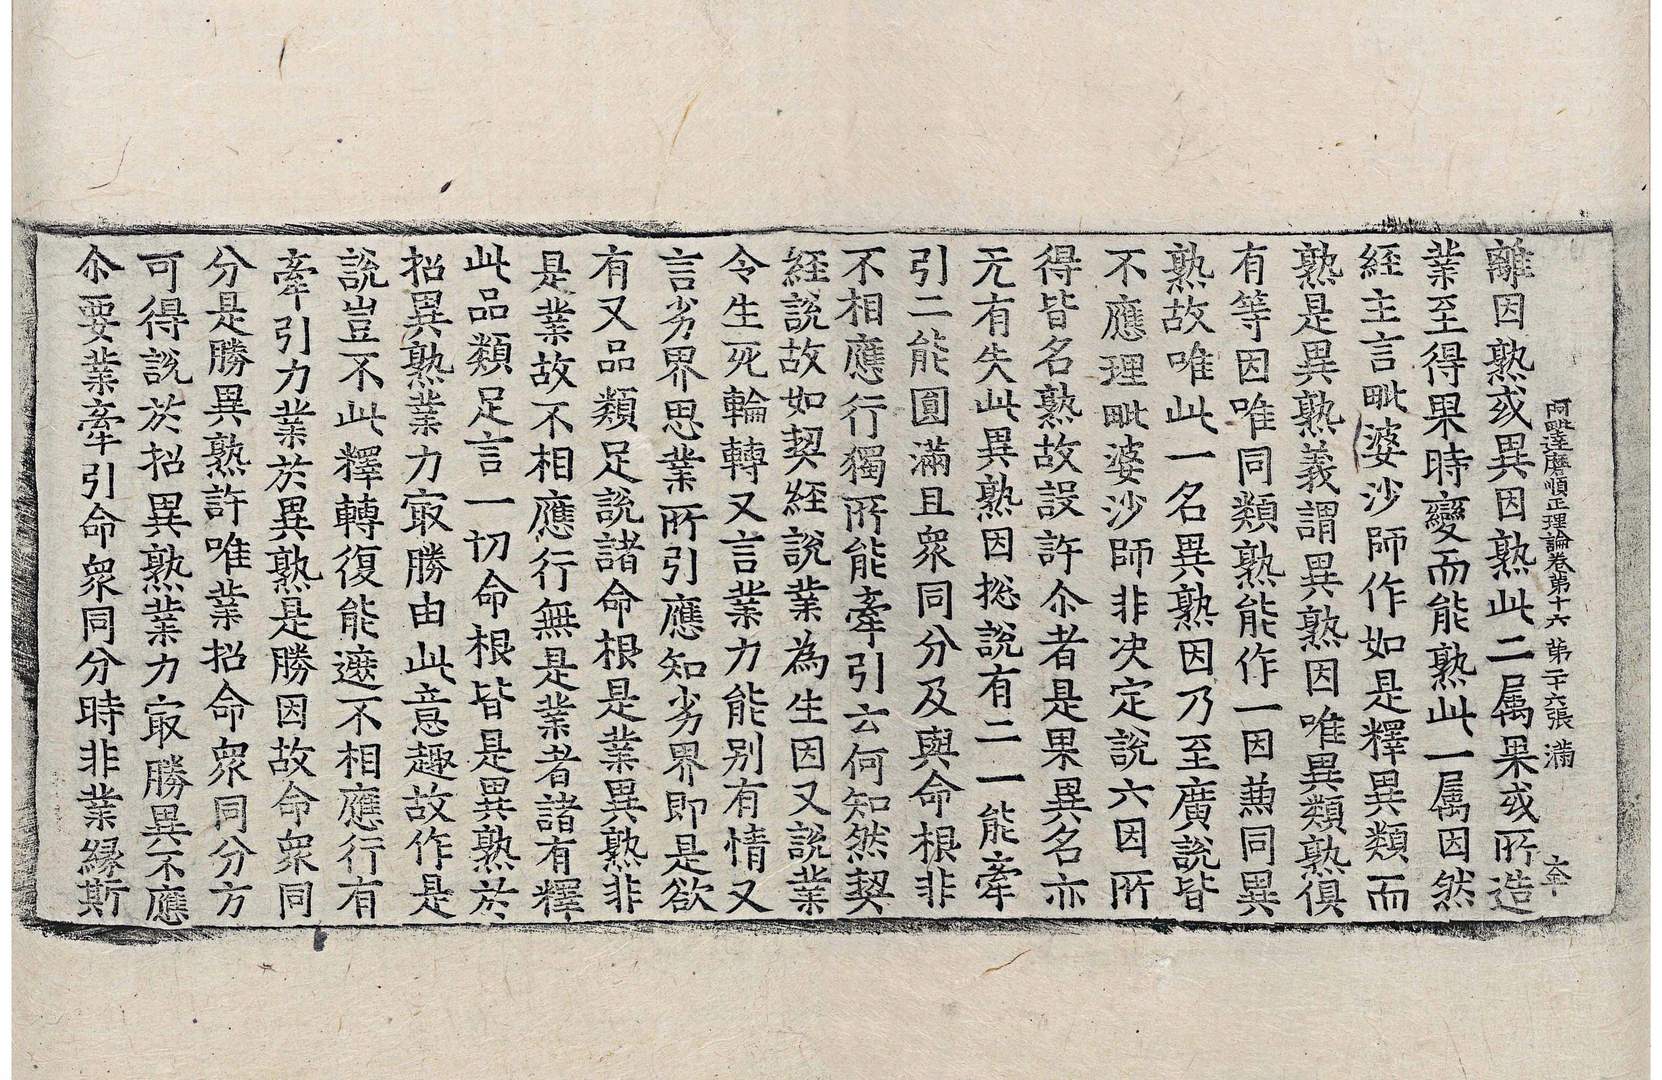 阿毗達磨順正理論卷第十六 第二十六張 滿
離因熟或異因熟此二属果或所造
業至得果時變而能熟此一属因然
経主言毗婆沙師作如是釋異類而
熟是異熟義謂異熟因唯異類熟俱
有等因唯同類熟能作一因兼同異
熟故唯此一名異熟因乃至廣說皆
不應理毗婆沙師非决定說六因所
得皆名熟故設許尒者是果異名亦
无有失此異熟因捴說有二一能牽
引二能圓滿且衆同分及與命根非
不相應行獨所能牽引云何知然契
経說故如契経說業為生因又說業
令生死輪轉又言業力能别有情又
言劣界思業所引應知劣界即是欲
有又品類足說諸命根是業異熟非
是業故不相應行無是業者諸有釋
此品類足言一切命根皆是異熟於
招異熟業力㝡勝由此意趣故作是
說豈不此釋轉復能遮不相應行有
牽引力業於異熟是勝因故命衆同
分是勝異熟許唯業招命衆同分方
可得說於招異熟業力㝡勝異不應
尒要業牽引命衆同分時非業縁斯